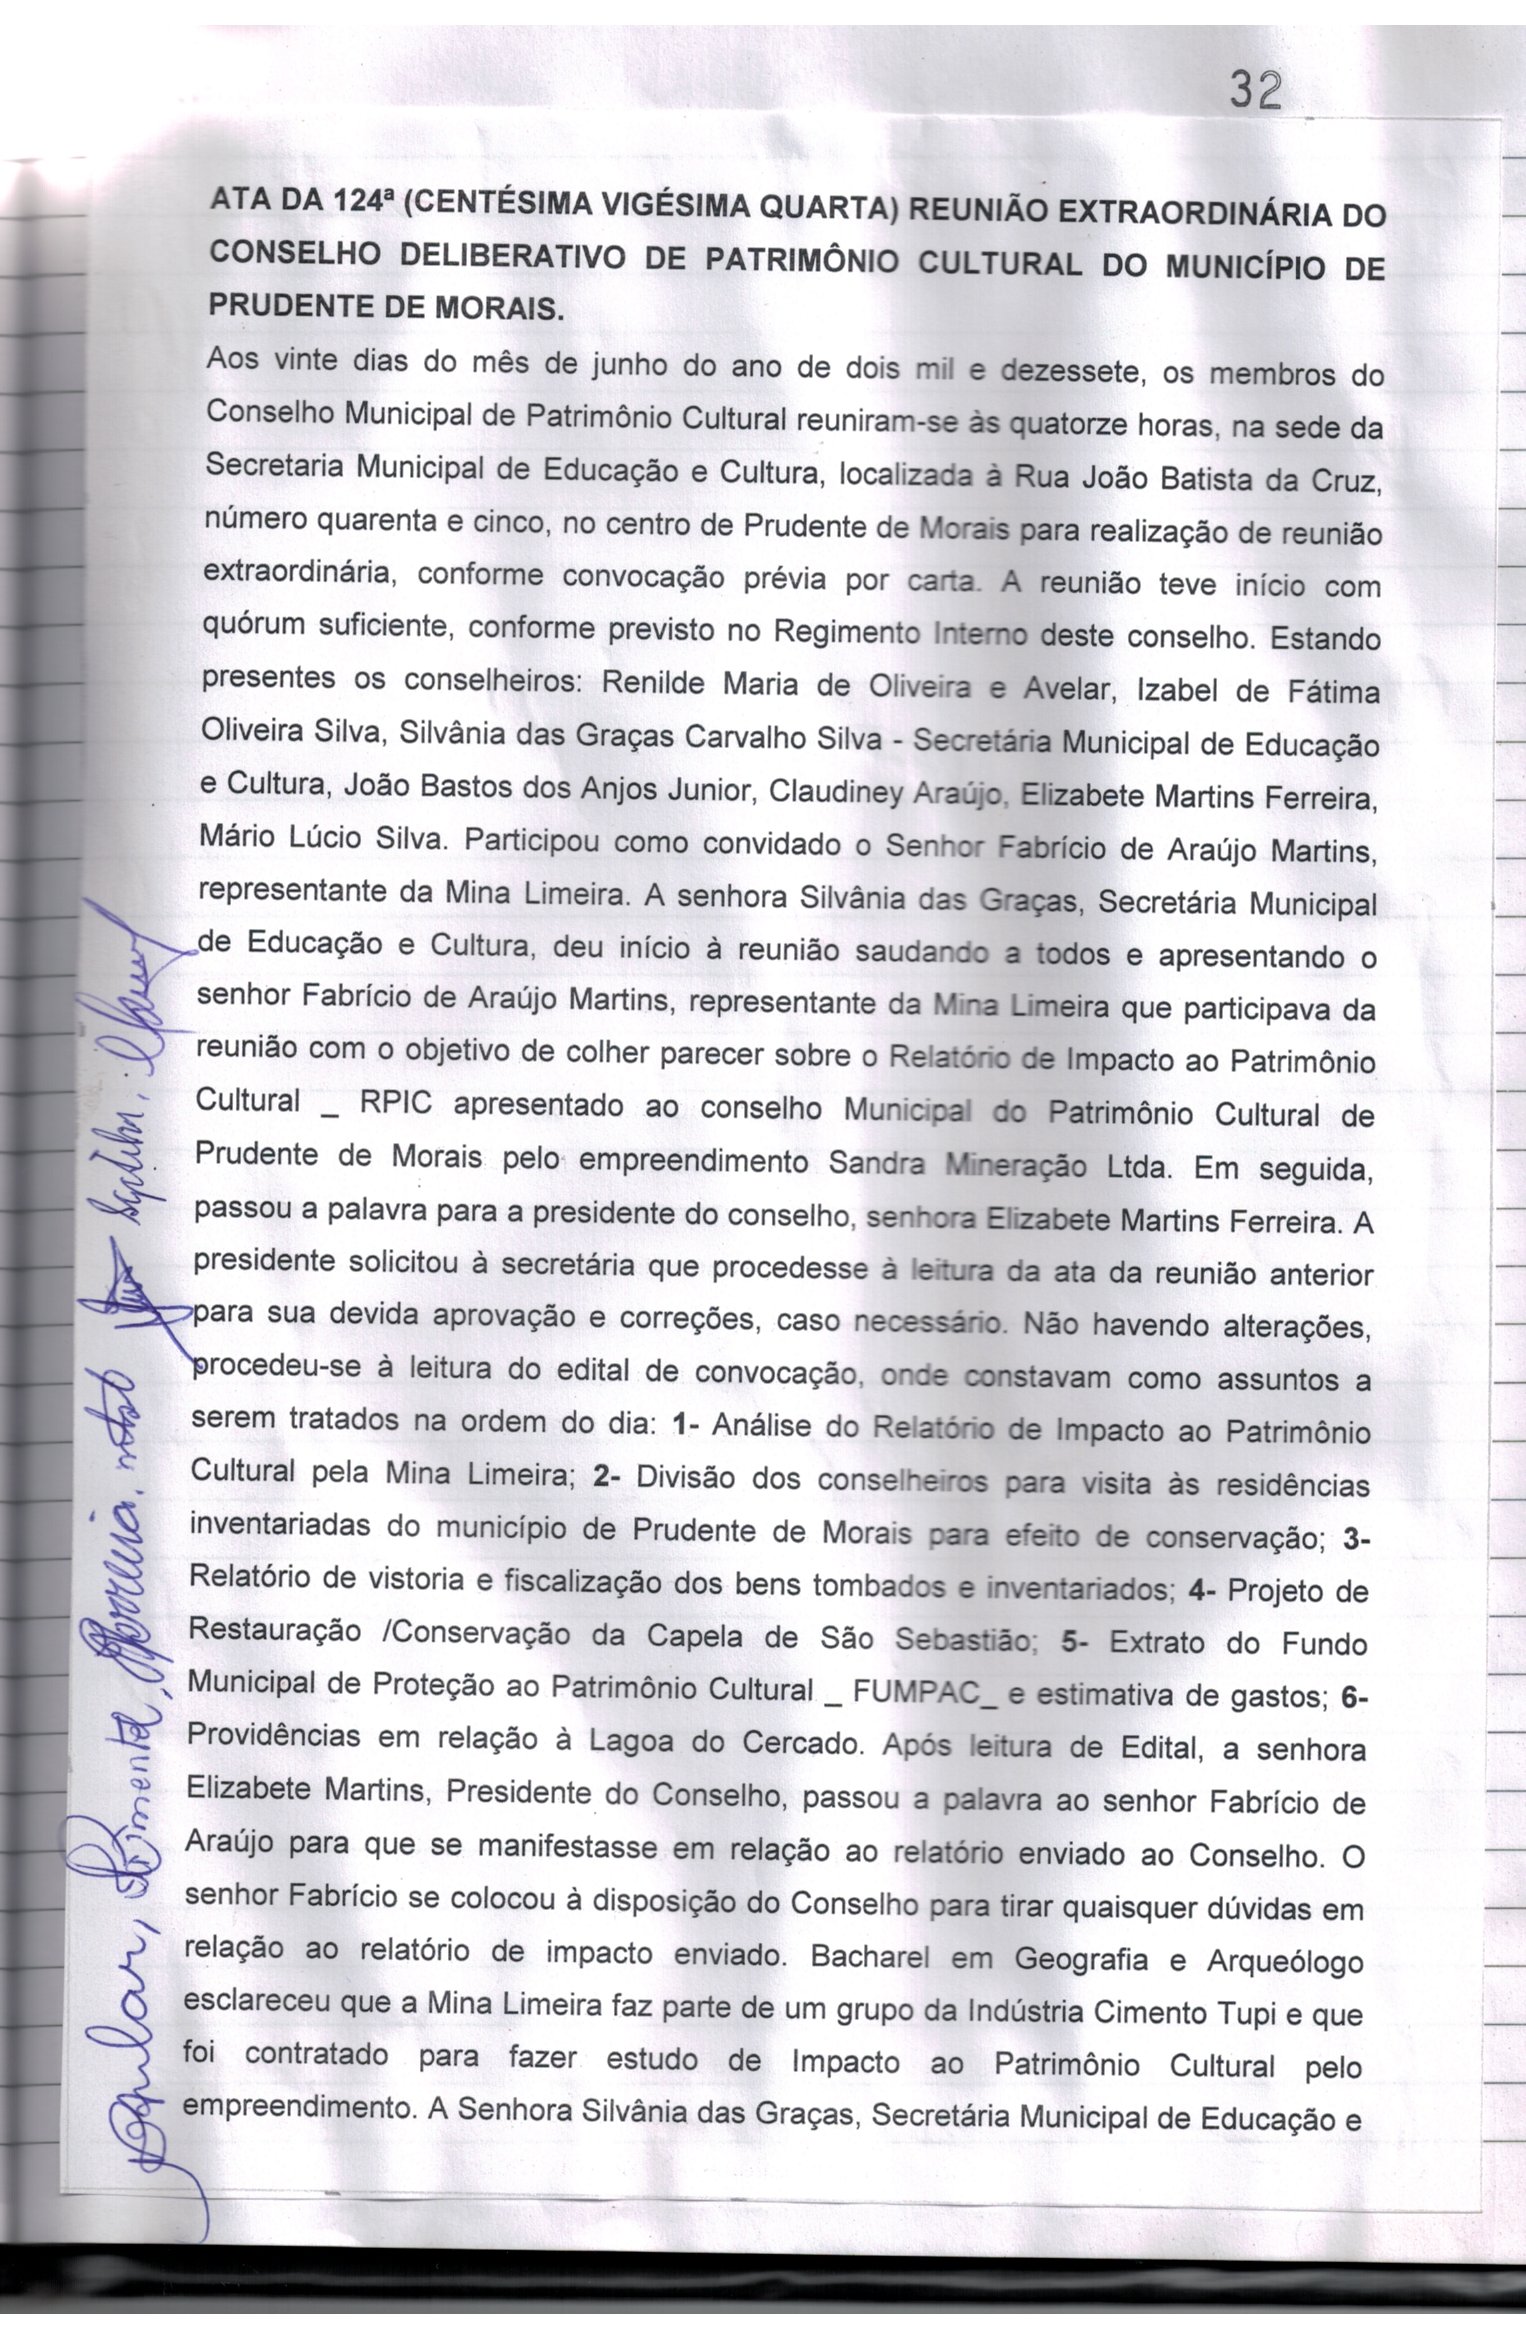 32
ATA DA 124ª (CENTÉSIMA VIGÉSIMA QUARTA) REUNIÃO EXTRAORDINÁRIA DO
CONSELHO DELIBERATIVO DE PATRIMÔNIO CULTURAL DO MUNICÍPIO DE
PRUDENTE DE MORAIS.
Aos vinte dias do mês de junho do ano de dois mil e dezessete, os membros do
Conselho Municipal de Patrimônio Cultural reuniram-se às quatorze horas, na sede da
Secretaria Municipal de Educação e Cultura, localizada à Rua João Batista da Cruz,
número quarenta e cinco, no centro de Prudente de Morais para realização de reunião
extraordinária, conforme convocação prévia por carta. A reunião teve início com
quórum suficiente, conforme previsto no Regimento Interno deste conselho. Estando
presentes os conselheiros: Renilde Maria de Oliveira e Avelar, Izabel de Fátima
Oliveira Silva, Silvânia das Graças Carvalho Silva - Secretária Municipal de Educação
e Cultura, João Bastos dos Anjos Junior, Claudiney Araújo, Elizabete Martins Ferreira,
Mário Lúcio Silva. Participou como convidado o Senhor Fabrício de Araújo Martins,
representante da Mina Limeira. A senhora Silvânia das Graças, Secretária Municipal
de Educação e Cultura, deu início à reunião saudando a todos e apresentando o
senhor Fabrício de Araújo Martins, representante da Mina Limeira que participava da
reunião com o objetivo de colher parecer sobre o Relatório de Impacto ao Patrimônio
Cultural _ RPIC apresentado ao conselho Municipal do Patrimônio Cultural de
Prudente de Morais pelo empreendimento Sandra Mineração Ltda. Em seguida,
passou a palavra para a presidente do conselho, senhora Elizabete Martins Ferreira. A
presidente solicitou à secretária que procedesse à leitura da ata da reunião anterior
para sua devida aprovação e correções, caso necessário. Não havendo alterações,
procedeu-se à leitura do edital de convocação, onde constavam como assuntos a
serem tratados na ordem do dia: 1- Análise do Relatório de Impacto ao Patrimônio
Cultural pela Mina Limeira; 2- Divisão dos conselheiros para visita às residências
inventariadas do município de Prudente de Morais para efeito de conservação; 3-
Relatório de vistoria e fiscalização dos bens tombados e inventariados; 4- Projeto de
Restauração /Conservação da Capela de São Sebastião; 5- Extrato do Fundo
Municipal de Proteção ao Patrimônio Cultural _ FUMPAC_ e estimativa de gastos; 6-
Providências em relação à Lagoa do Cercado. Após leitura de Edital, a senhora
Elizabete Martins, Presidente do Conselho, passou a palavra ao senhor Fabrício de
Araújo para que se manifestasse em relação ao relatório enviado ao Conselho. O
senhor Fabrício se colocou à disposição do Conselho para tirar quaisquer dúvidas em
relação ao relatório de impacto enviado. Bacharel em Geografia e Arqueólogo
esclareceu que a Mina Limeira faz parte de um grupo da Indústria Cimento Tupi e que
foi contratado para fazer estudo de Impacto ao Patrimônio Cultural pelo
empreendimento. A Senhora Silvânia das Graças, Secretária Municipal de Educação e